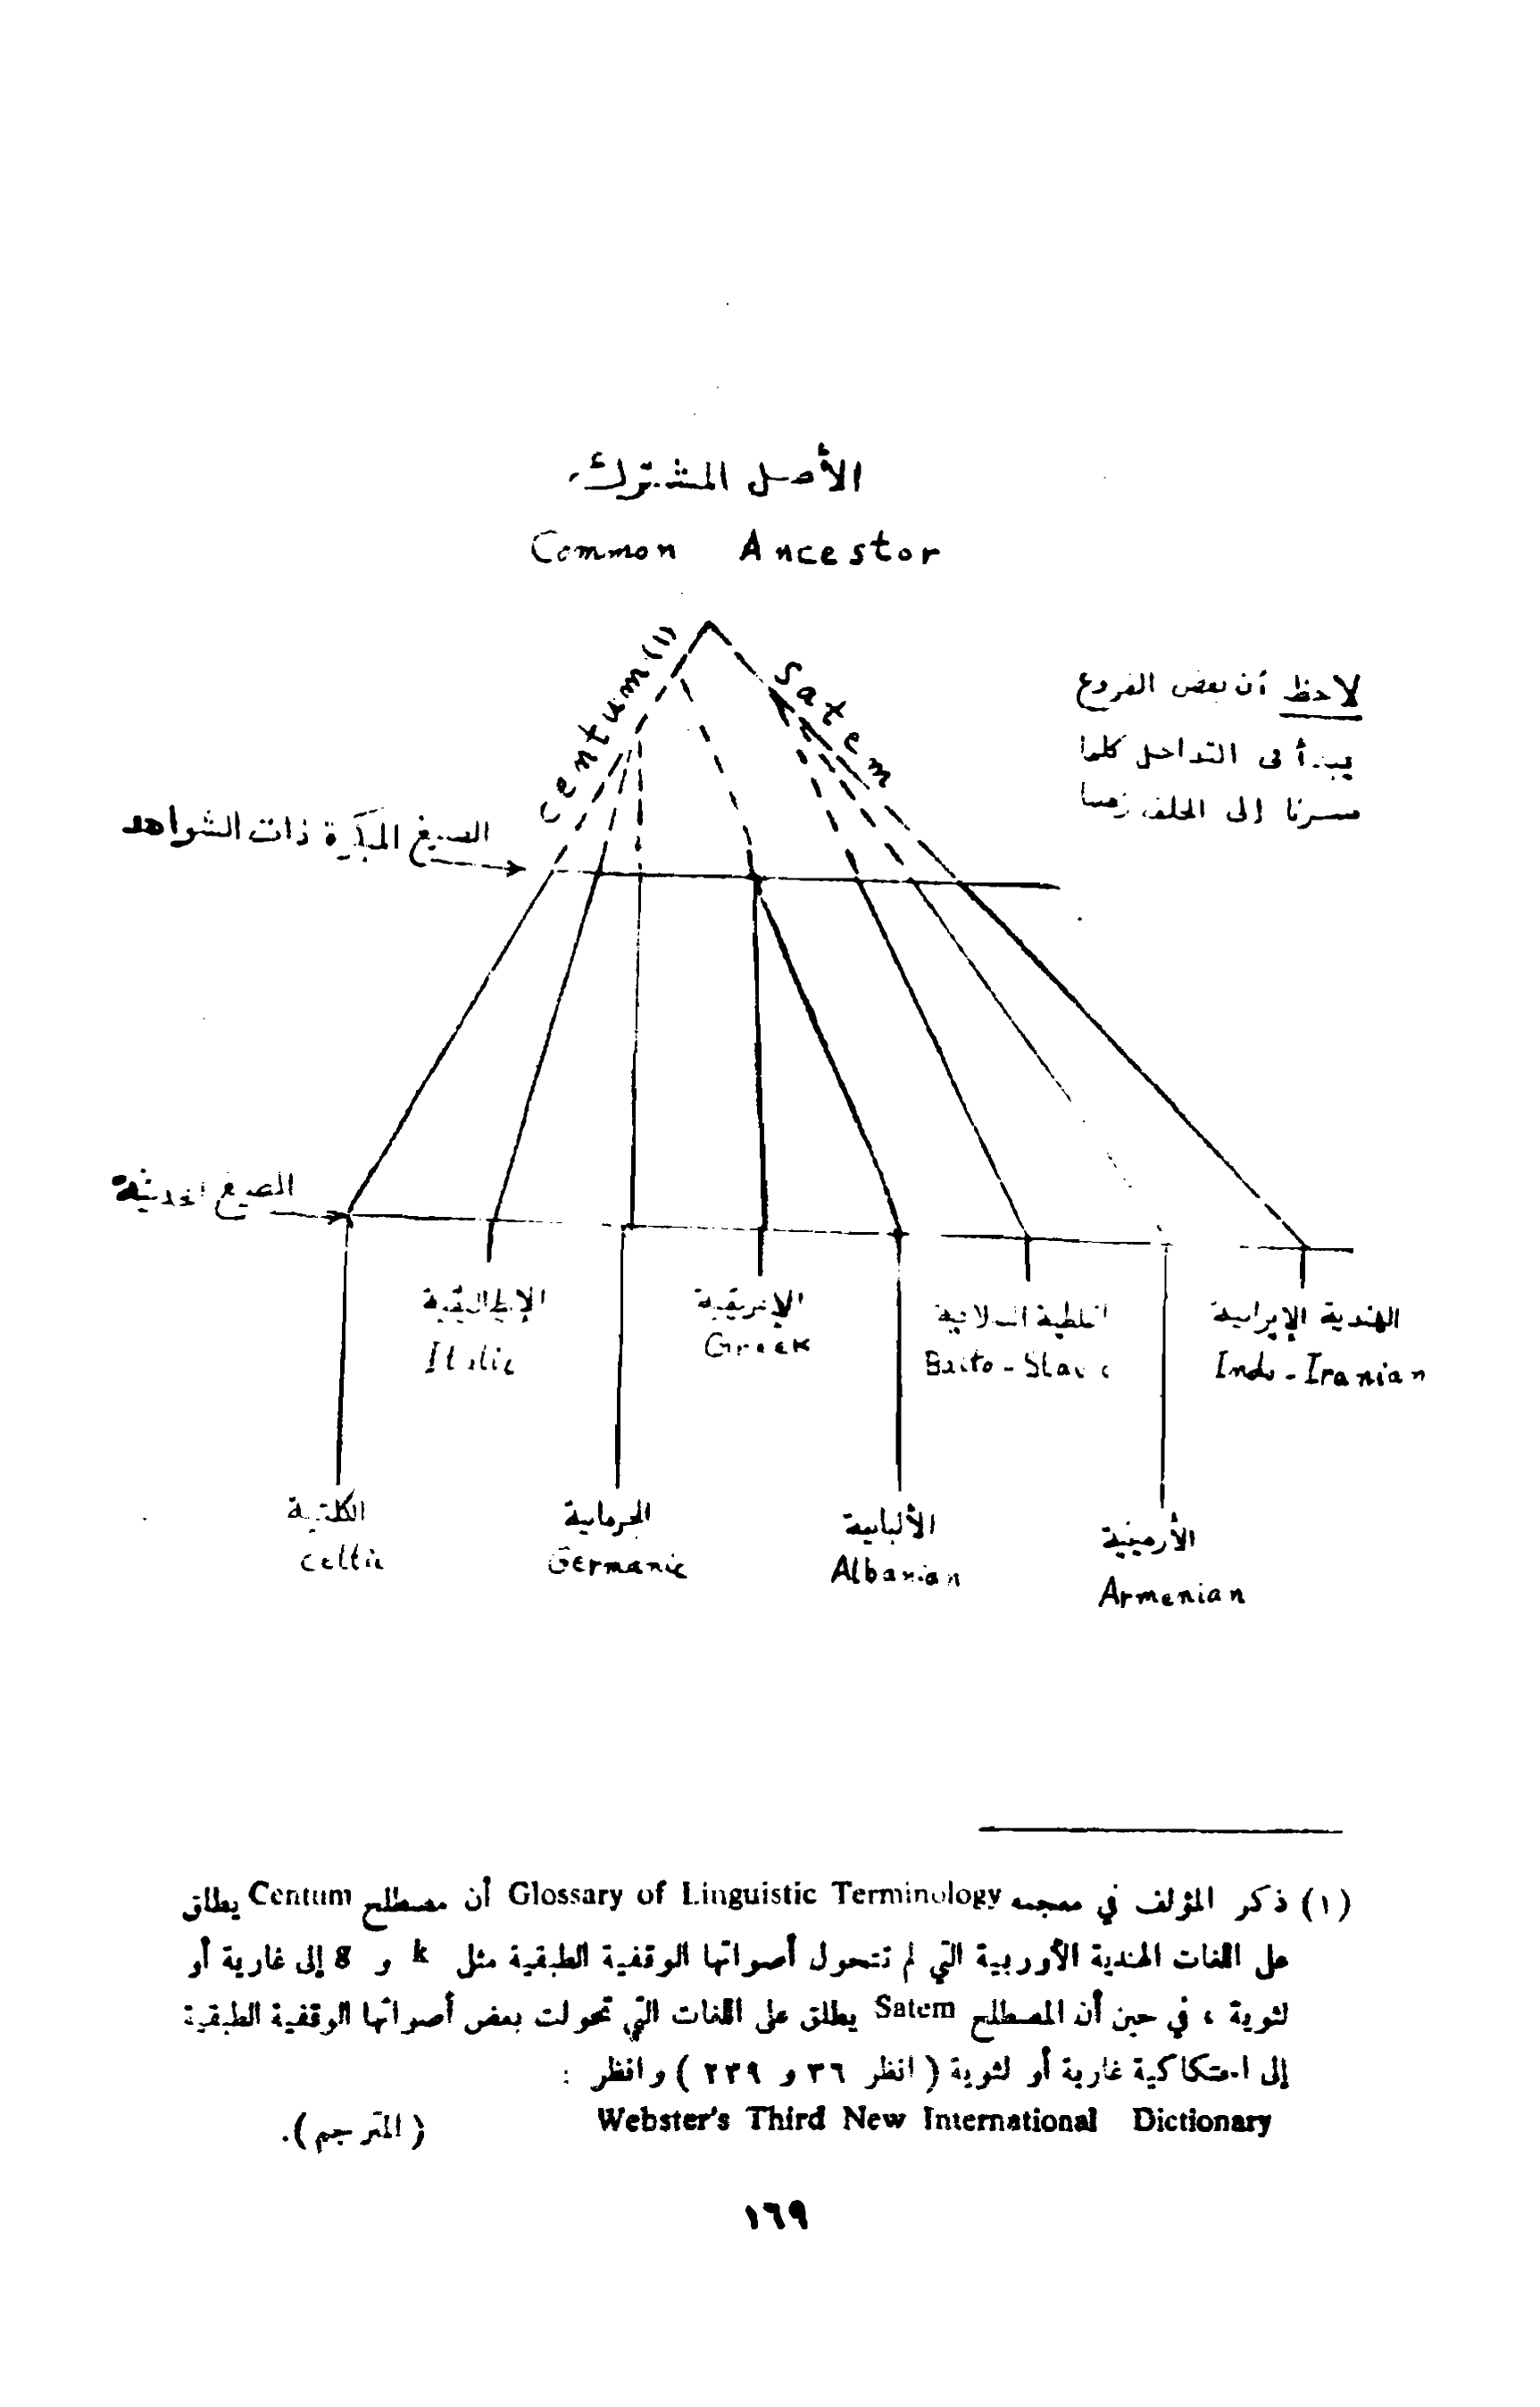 الأصل المشترك
Common Ancestor
centum (١)
Satem
لاحظ أن بعض الفروع
يبدأ فى التداخل كلما
سرنا إلى الخلف زمنيا
الصيغ المبكرة ذات الشواهد
الصيغ الحديثة
الإيطاليقية
Italic
الإغريقية
Greek
البلطية السلافية
Balto - Slavic
الهندية الإيرانية
Indo - Iranian
الكلتية
Celtic
الجرمانية
Germanic
الألبانية
Albanian
الأرمينية
Armenian
(١) ذكر المؤلف في معجمه Glossary of Linguistic Terminology أن مصطلح Centum يطلق
على اللغات الهندية الأوربية التي لم تتحول أصواتها الوقفية الطبقية مثل k و g إلى غارية أو
لثوية ، في حين أن المصطلح Satem يطلق على اللغات التي تحولت بعض أصواتها الوقفية الطبقية
إلى احتكاكية غارية أو لثوية ( انظر ٣٦ و ٢٣٩ ) وانظر :
Webster's Third New International Dictionary
( المترجم ).
١٦٩